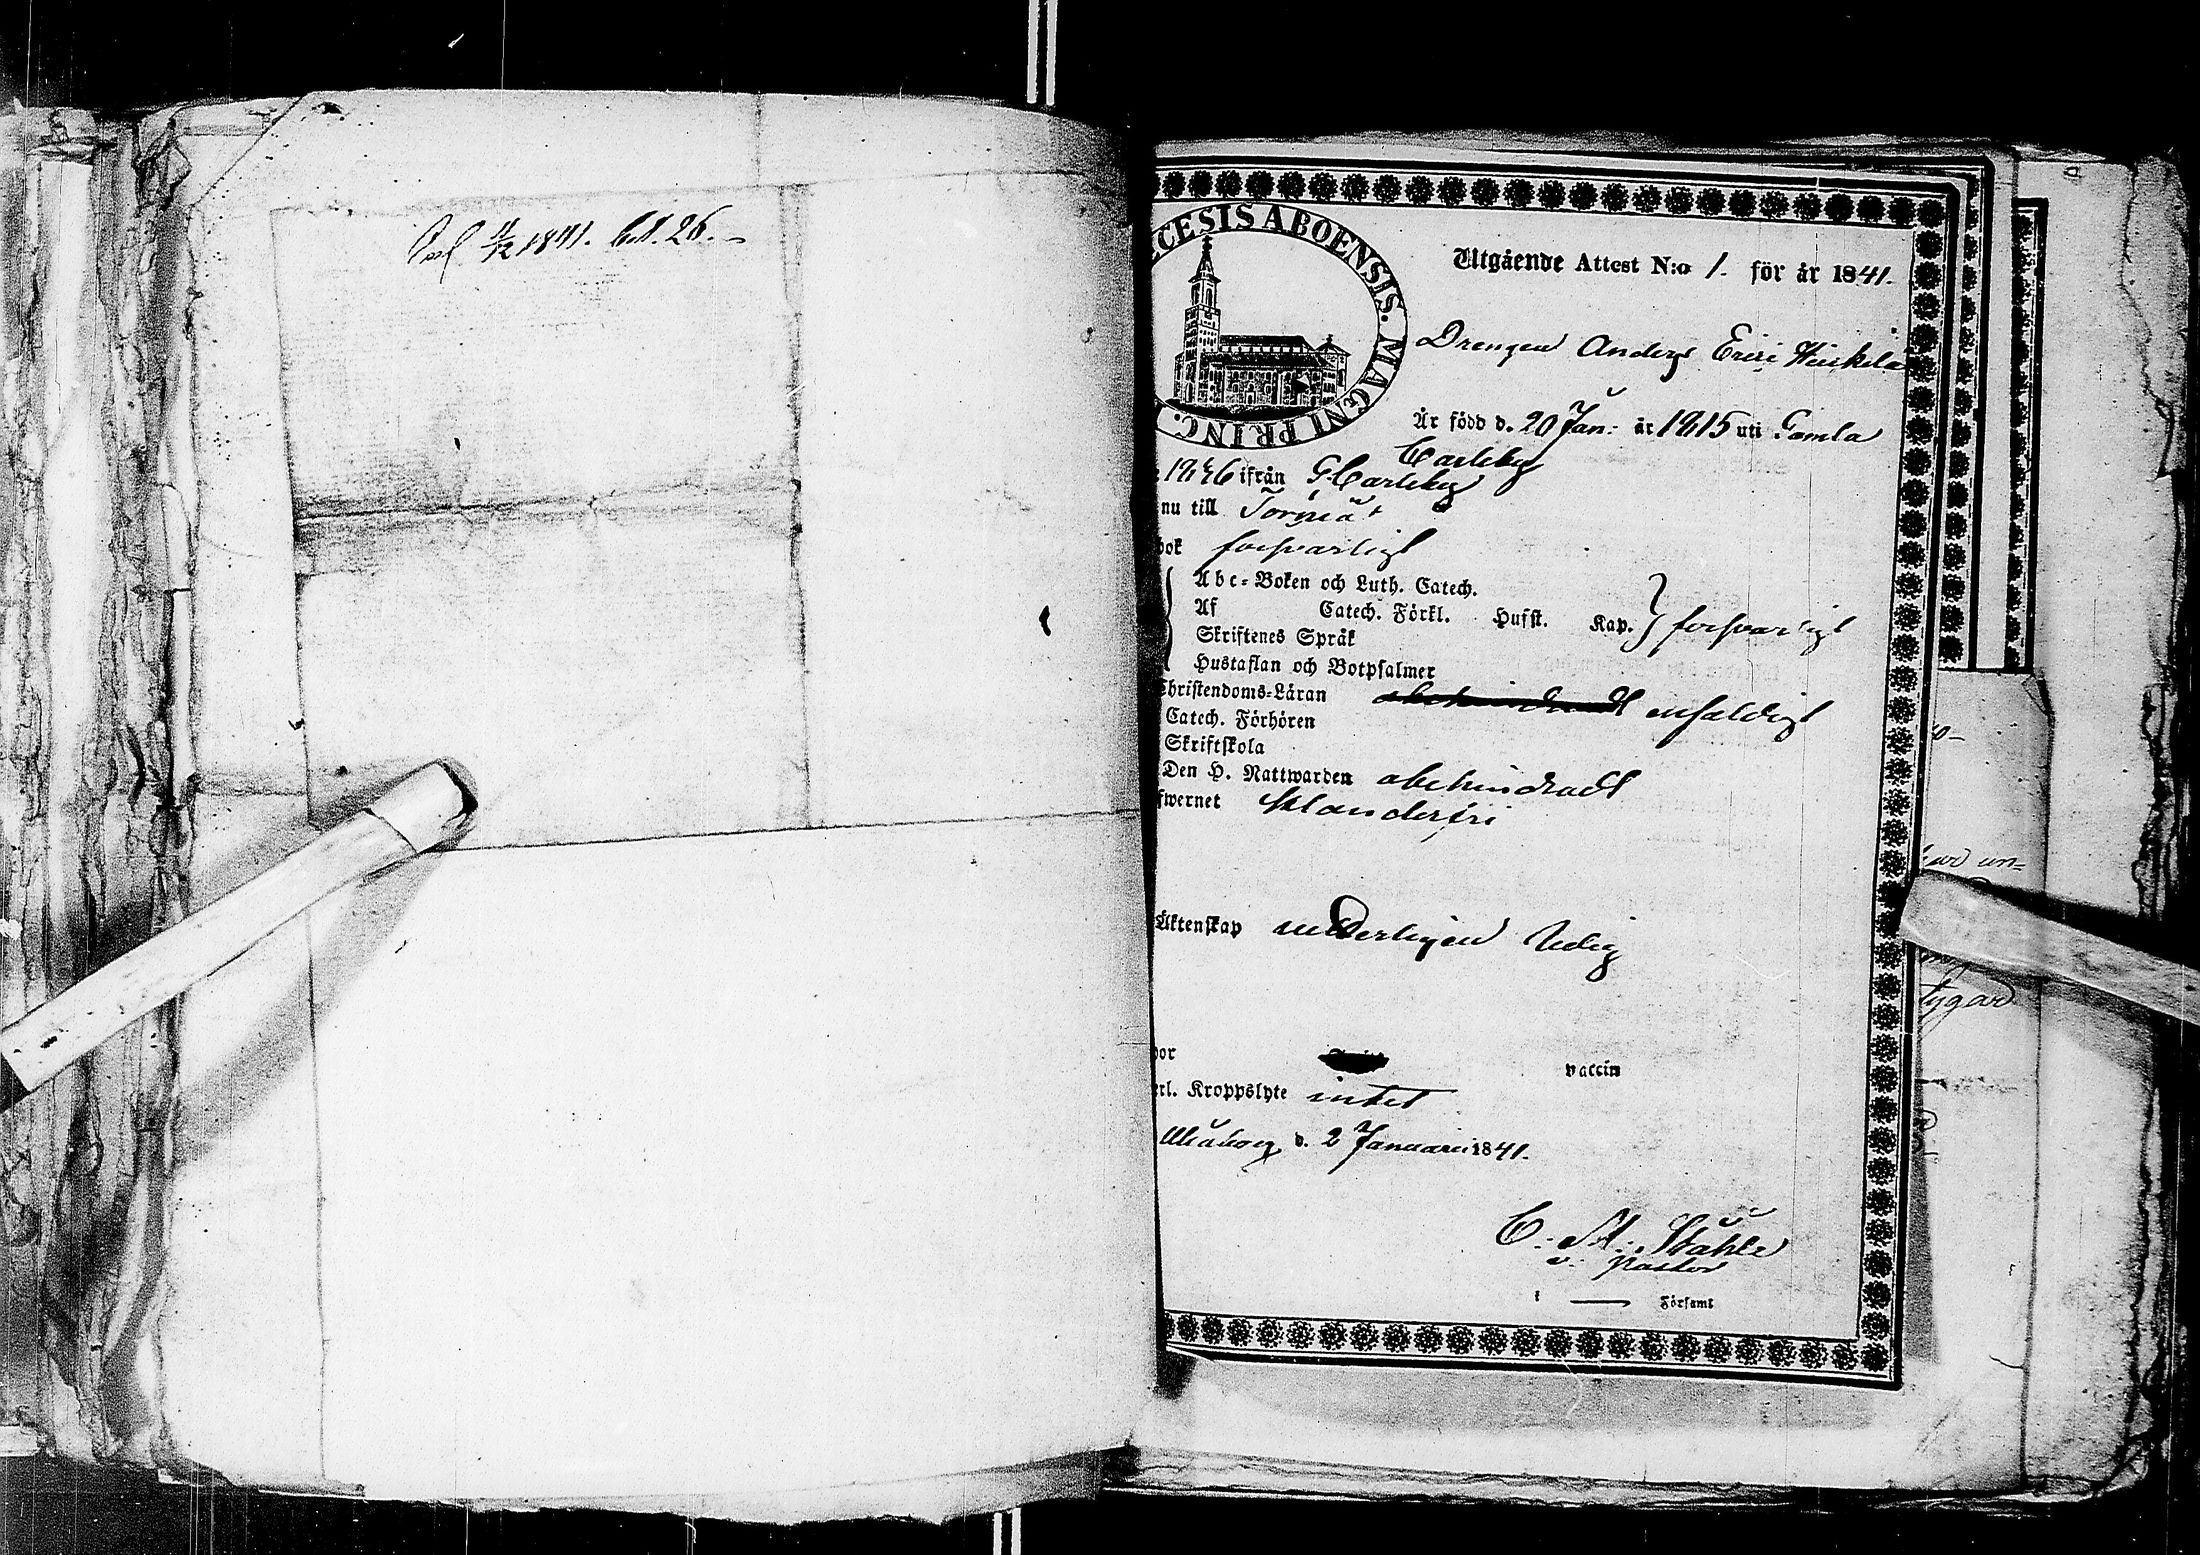 11/12 1841. bet. 26.
CESIS ABOENSIS. MAGNI PRINC.
Utgående Attest N:o 1. för år 1841.
Drengen Anders Eric
Är född d. 20 Jan: år 1815 uti Gamla
Carleby
ifrån G Carleby
nu till Torneå
bok försvarligt
Abc-Boken och Luth. Catech.
Af Catech. Förkl. Husst. Kap. försvarligt
Skriftenes Språk
Hustaflan och Botpsalmer
Christendoms-Läran obehindradt enfaldigt
Catech. Förhören
Skriftskola
Den H. Nattwarden obehindradt
fwernet klanderfri
Äktenskap ledig
vaccin
erl. Kroppslyte intet
Uleåborg d. 2 Januarii 1841.
C. M. Ståhle
v. Pastor
i Församl